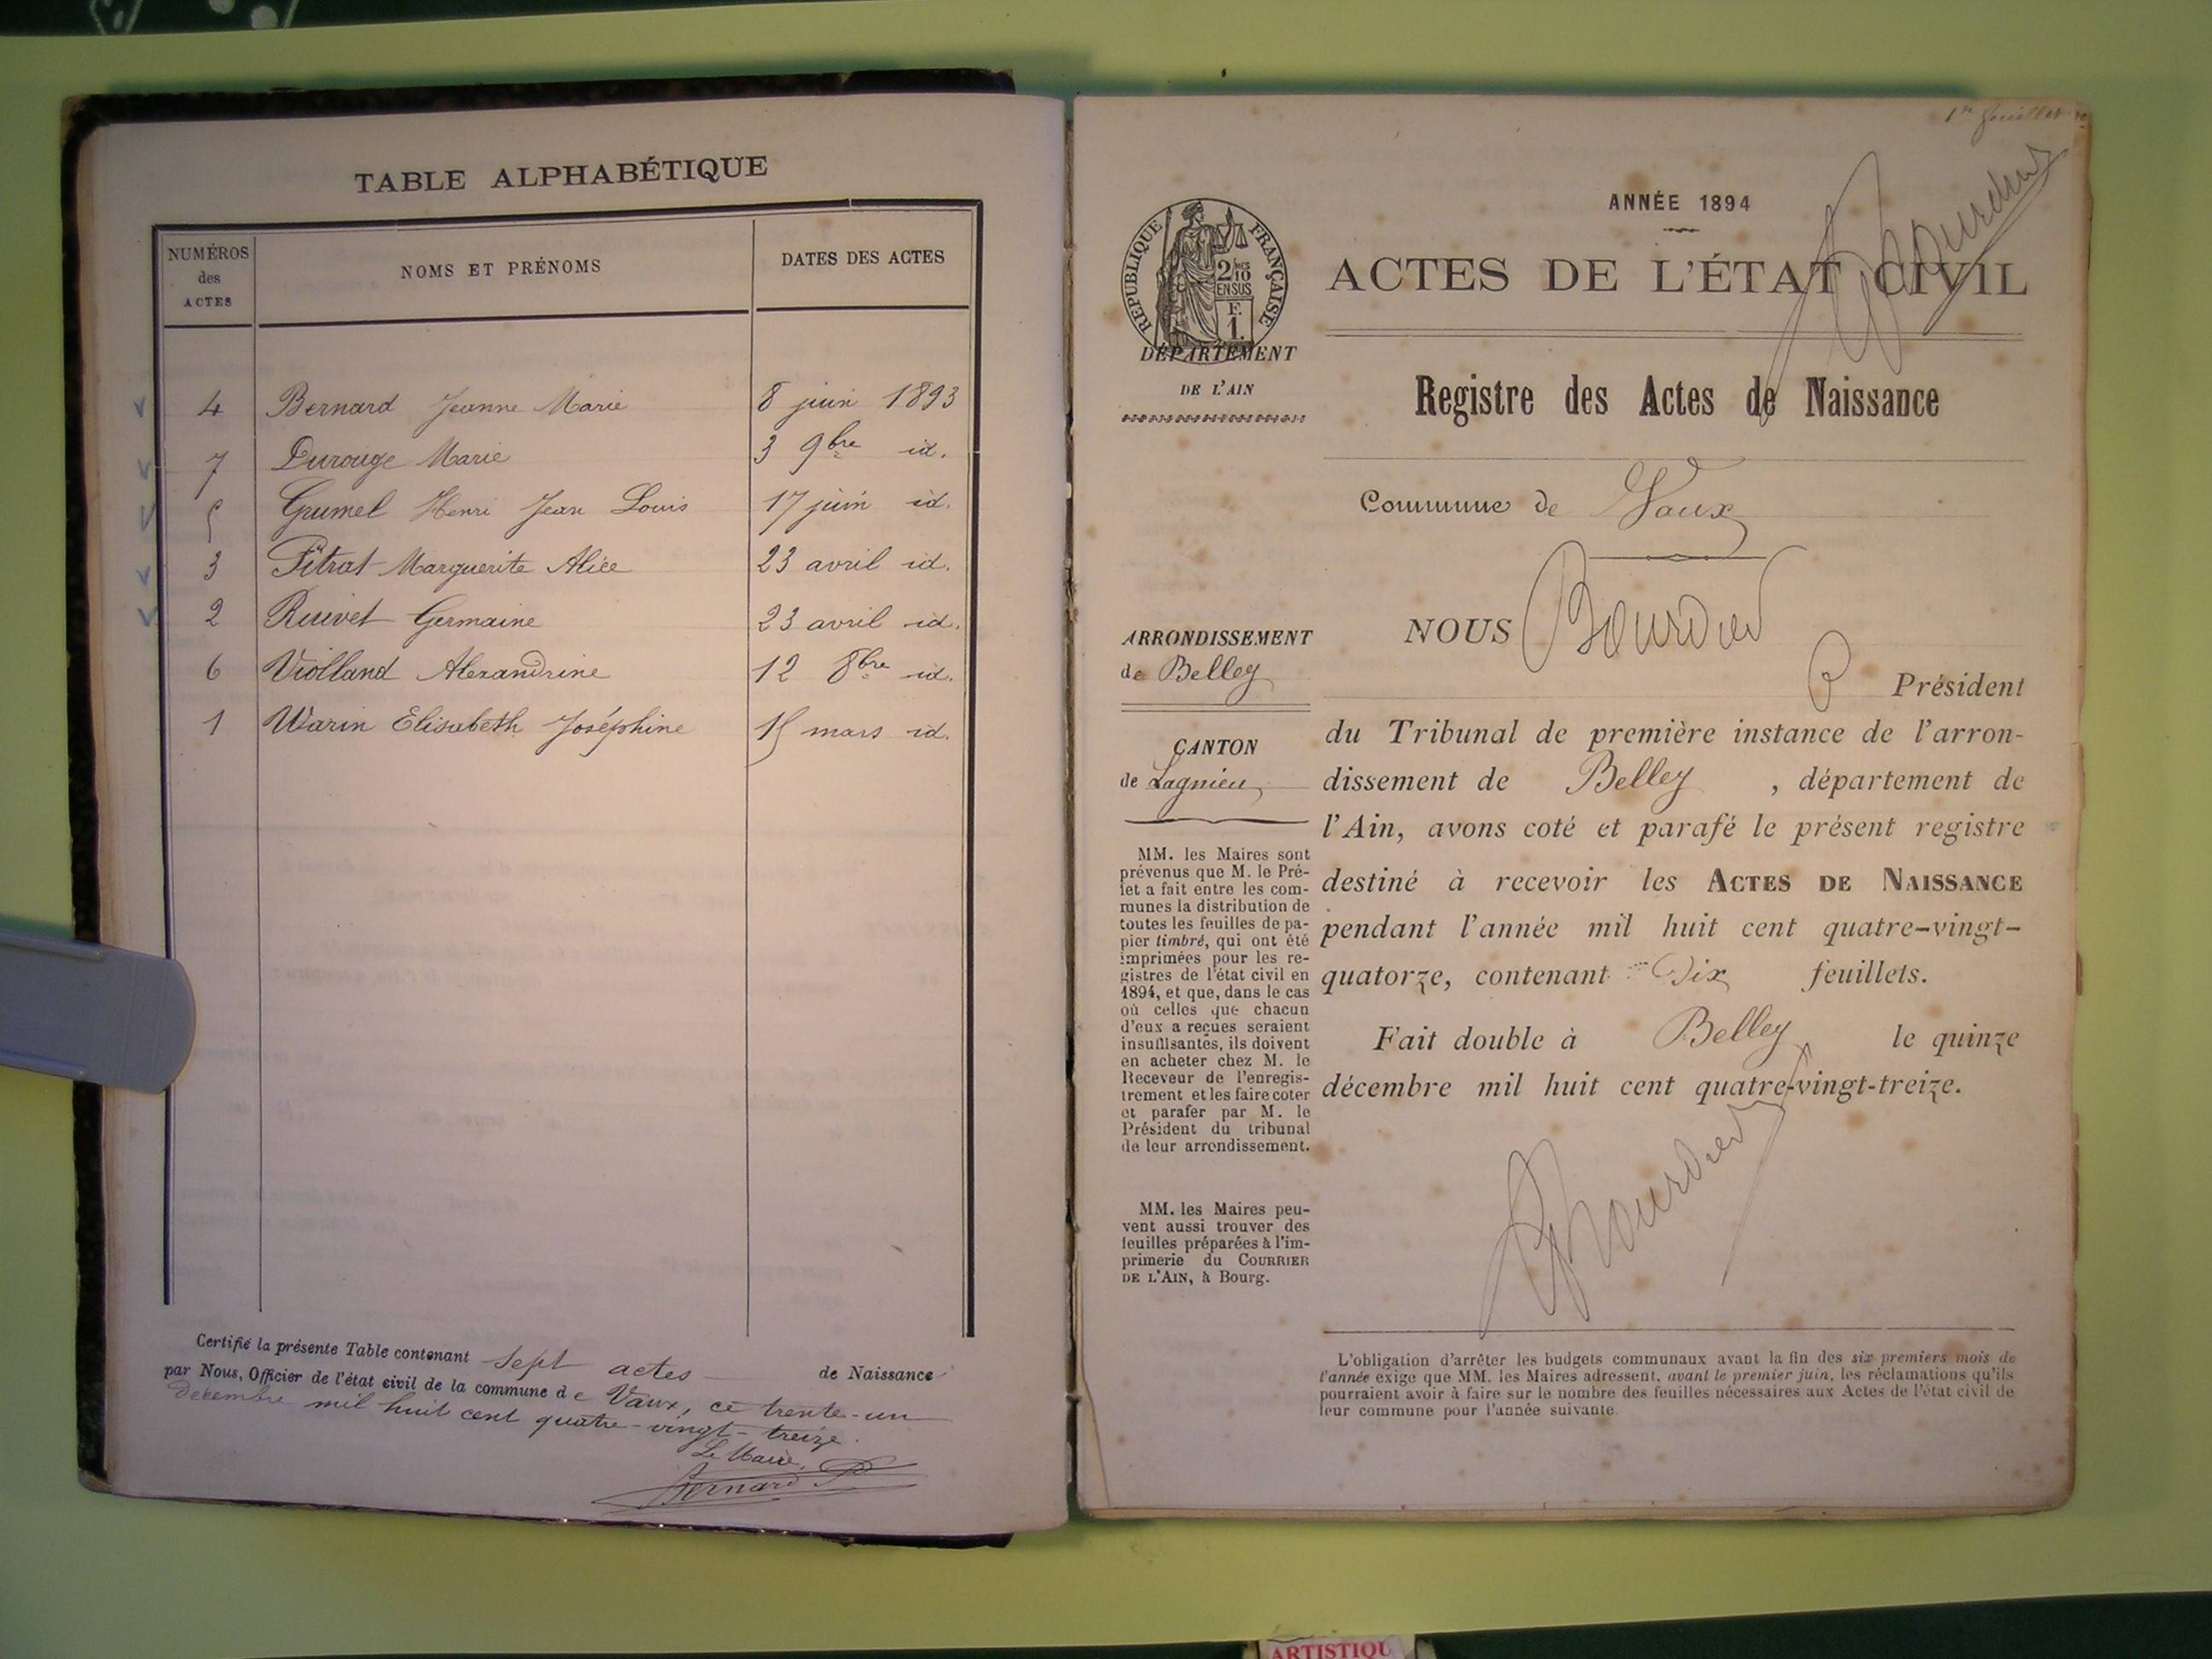 TABLE ALPHABÉTIQUE
NUMÉROS des ACTES
NOMS ET PRÉNOMS
DATES DES ACTES
4 Bernard Jeanne Marie 8 juin 1893
7 Durouge Marie 3 9bre id.
5 Grumel Henri Jean Louis 17 juin id.
3 Pitrat Marguerite Alice 23 avril id.
2 Ruivet Germaine 23 avril id.
6 Violland Alexandrine 12 8bre id.
1 Warin Elisabeth Joséphine 15 mars id.
Certifié la présente Table contenant sept actes de Naissance
par Nous, Officier de l'état civil de la commune de Vaux, ce trente-un
décembre mil huit cent quatre-vingt-treize.
Le Maire,
Bernard
1er feuillet
Bourdier
ANNÉE 1894
RÉPUBLIQUE FRANÇAISE
2/10 EN SUS
F. 1.
ACTES DE L'ÉTAT CIVIL
DÉPARTEMENT
DE L'AIN
Registre des Actes de Naissance
Commune de Vaux
ARRONDISSEMENT
de Belley
CANTON
de Lagnieu
MM. les Maires sont
prévenus que M. le Pré-
fet a fait entre les com-
munes la distribution de
toutes les feuilles de pa-
pier timbré, qui ont été
imprimées pour les re-
gistres de l'état civil en
1894, et que, dans le cas
où celles que chacun
d'eux a reçues seraient
insuffisantes, ils doivent
en acheter chez M. le
Receveur de l'enregis-
trement et les faire coter
et parafer par M. le
Président du tribunal
de leur arrondissement.
MM. les Maires peu-
vent aussi trouver des
feuilles préparées à l'im-
primerie du COURRIER
DE L'AIN, à Bourg.
NOUS Bourdier
Président
du Tribunal de première instance de l'arron-
dissement de Belley, département de
l'Ain, avons coté et parafé le présent registre
destiné à recevoir les ACTES DE NAISSANCE
pendant l'année mil huit cent quatre-vingt-
quatorze, contenant Dix feuillets.
Fait double à Belley le quinze
décembre mil huit cent quatre-vingt-treize.
Bourdier
L'obligation d'arrêter les budgets communaux avant la fin des six premiers mois de
l'année exige que MM. les Maires adressent, avant le premier juin, les réclamations qu'ils
pourraient avoir à faire sur le nombre des feuilles nécessaires aux Actes de l'état civil de
leur commune pour l'année suivante.
ARTISTIQU